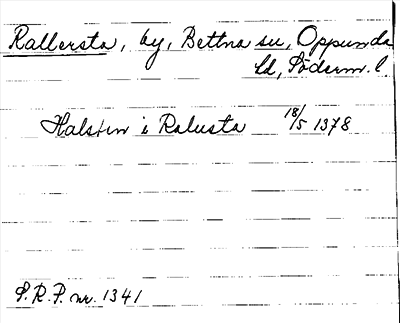 Rallersta, by, Bettna sn, Oppunda
hd, Söderm. l.
Halsten i Ralusta 18/5 1378
S.R.P. nr. 1341